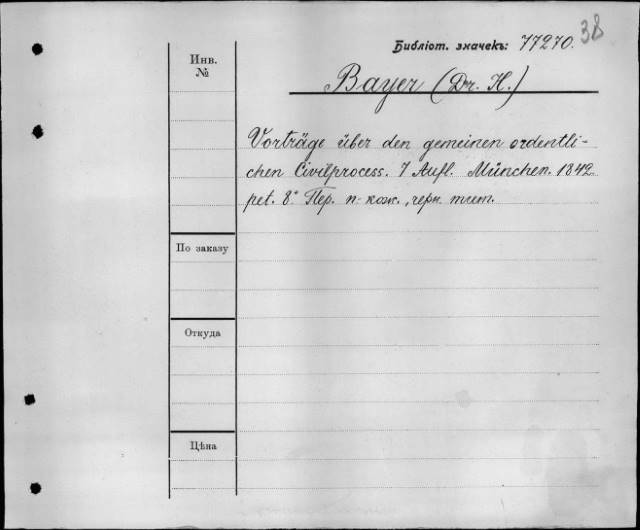 38
Библіот. значекъ: 77270.
Инв.
№
Bayer (Dr. H.)
Vorträge über den gemeinen ordentli-
chen Civilprocess. 7 Aufl. München. 1842
pet. 8° Пер. п-кож., черн. тит.
По заказу
Откуда
Цѣна